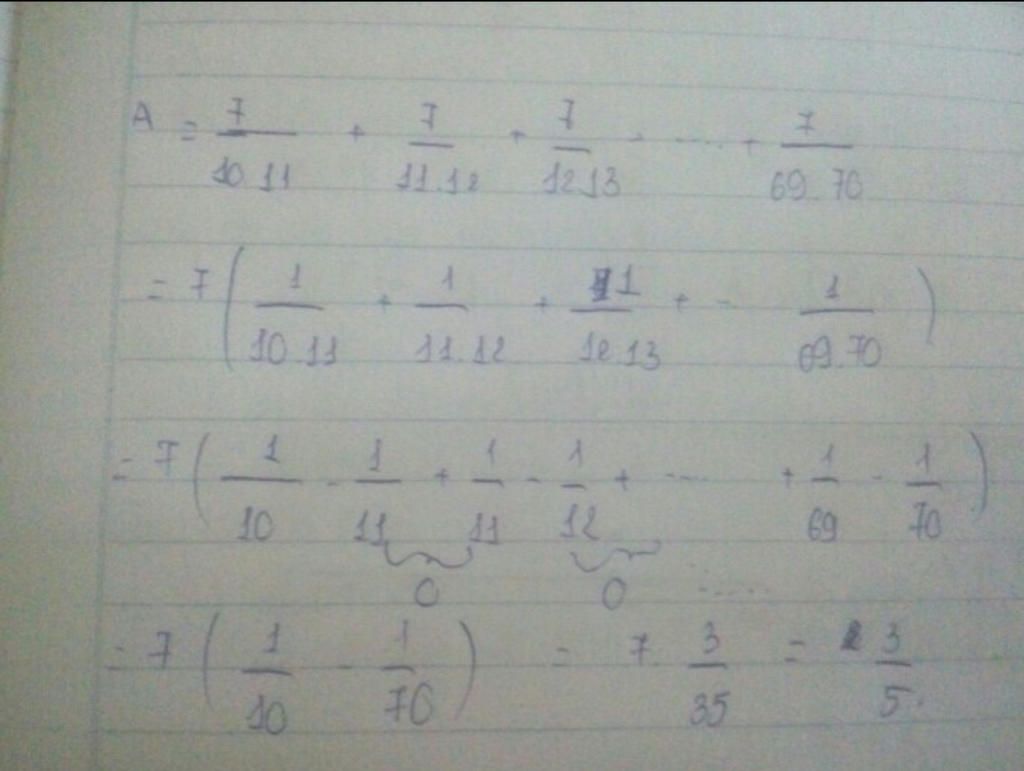 A = 7/10.11 + 7/11.12 + 7/12.13 + ..... + 7/69.70
= 7 ( 1/10.11 + 1/11.12 + 1/12.13 + - 1/69.70 )
= 7 ( 1/10 - 1/11 + 1/11 - 1/12 + ..... + 1/69 - 1/70 )
0 0 .....
= 7 ( 1/10 - 1/70 ) = 7. 3/35 = 3/5.